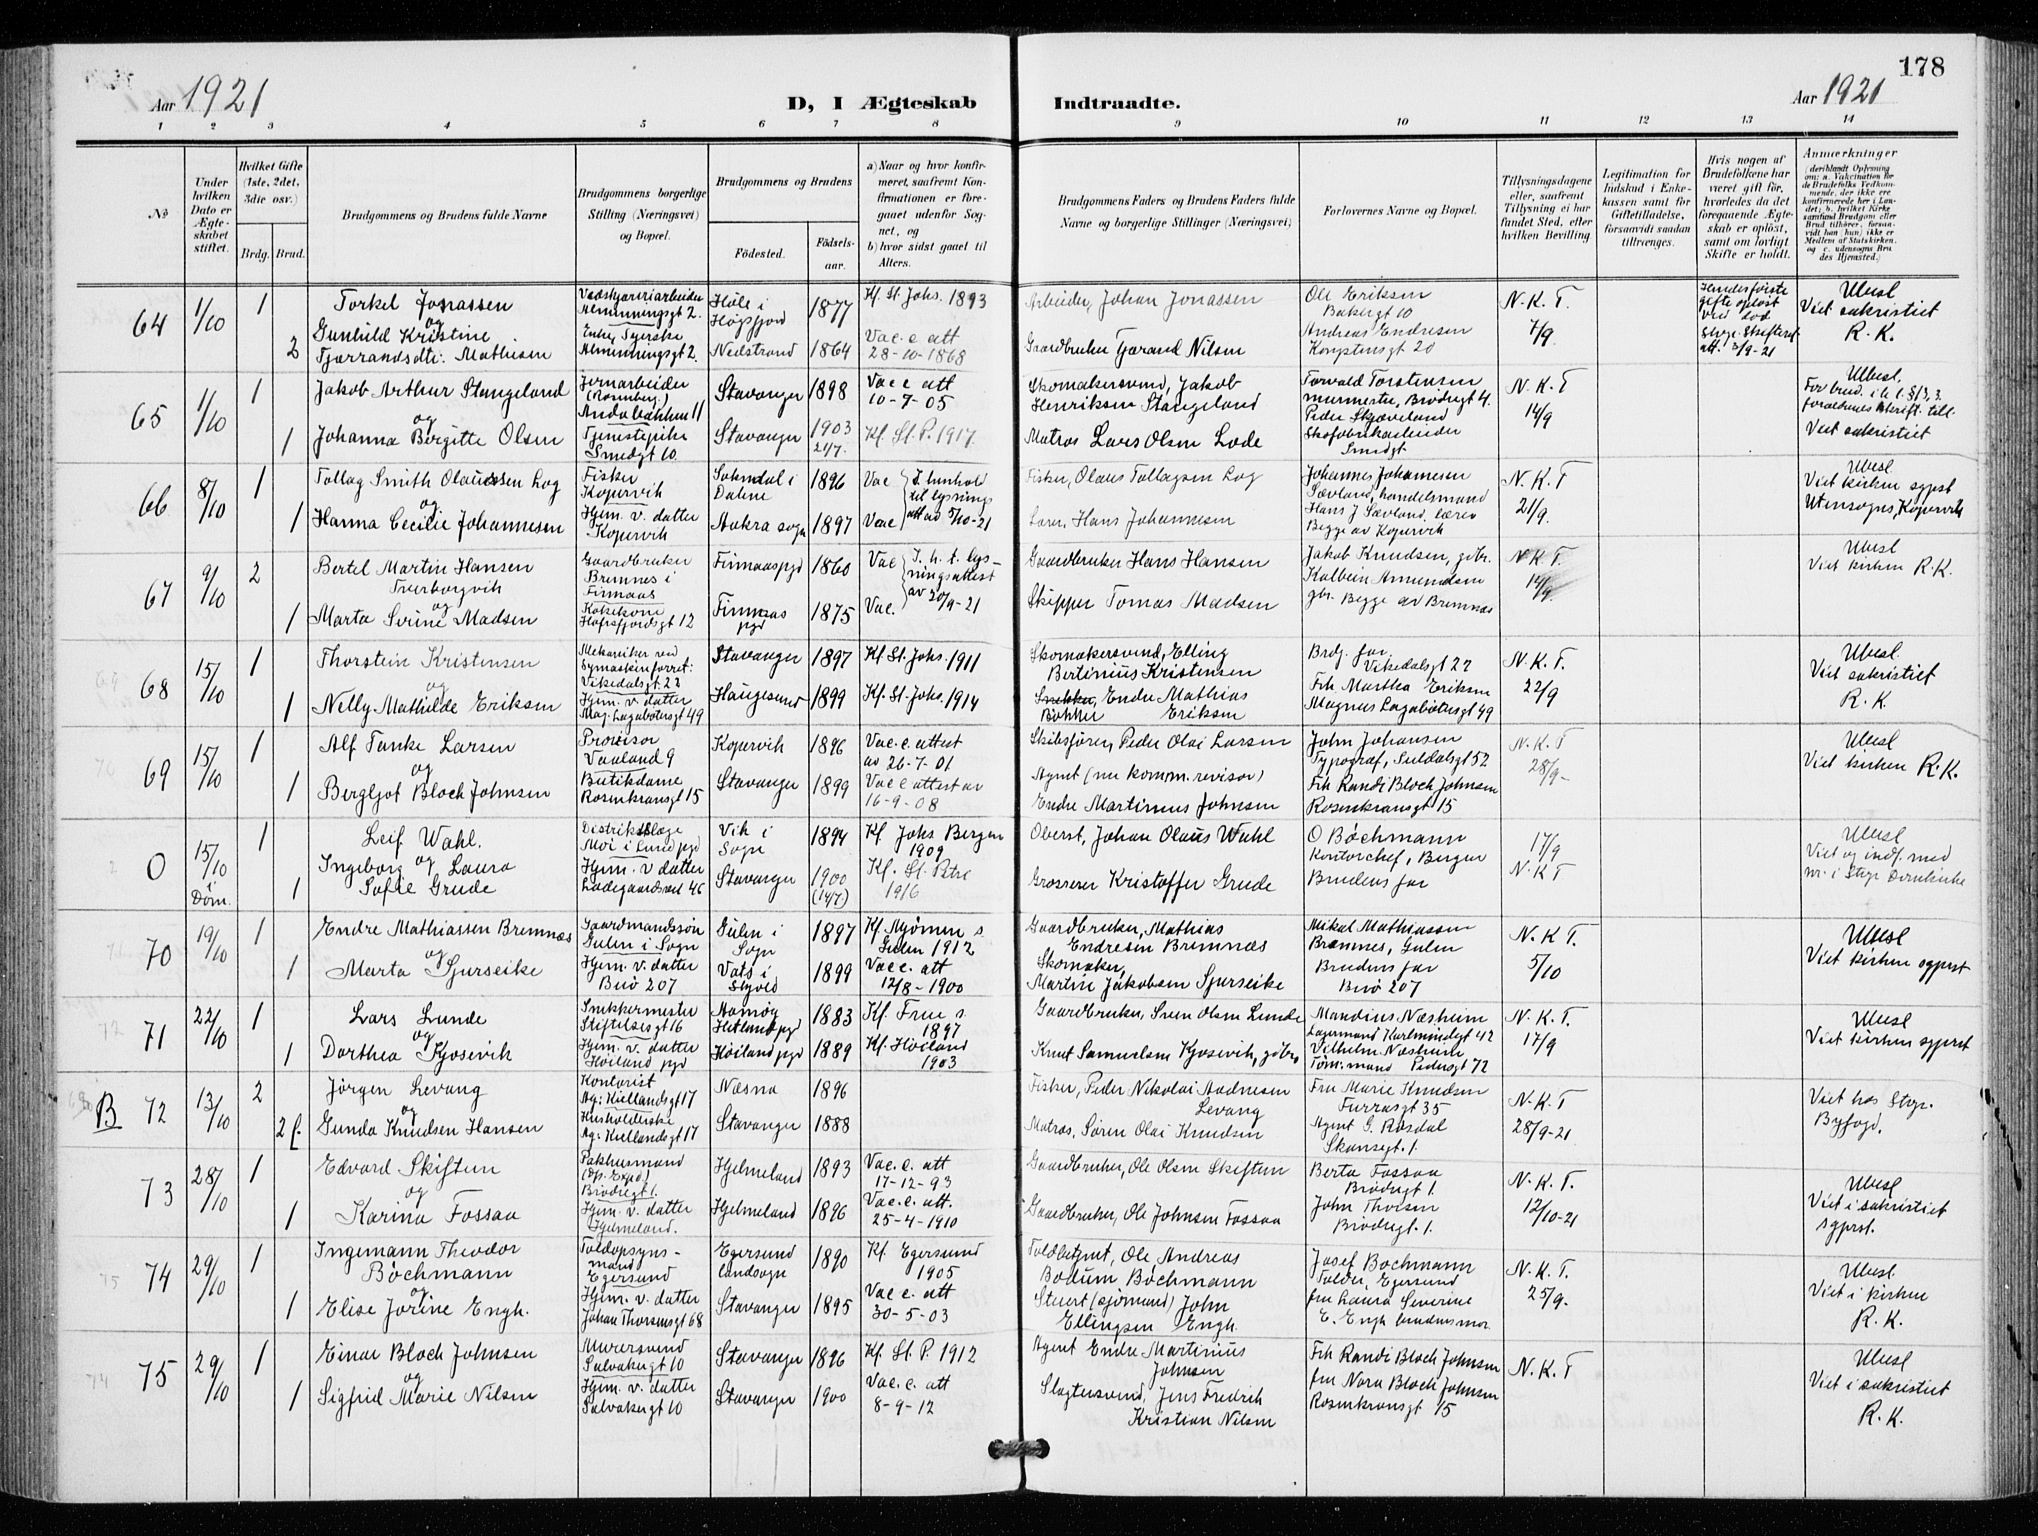 178
Aar 1921
D, I Ægteskab
Indtraadte.
Aar 1921
1 2 3 4 5 6 7 8 9 10 11 12 13 14
No
Under hvilken Dato er Ægteskabet stiftet.
Hvilket Gifte (1ste, 2det, 3die osv.)
Brdg. Brud.
Brudgommens og Brudens fulde Navne
Brudgommens borgerlige Stilling (Næringsvei) og Bopæl.
Brudgommens og Brudens
Fødested.
Fødselsaar.
a) Naar og hvor konfirmeret, saafremt Konfirmationen er foregaaet udenfor Sognet, og
b) hvor sidst gaaet til Alters.
Brudgommens Faders og Brudens Faders fulde Navne og borgerlige Stillinger (Næringsvei)
Forlovernes Navne og Bopæl.
Tillysningsdagene eller, saafremt Tillysning ei har fundet Sted, efter hvilken Bevilling
Legitimation for Indskud i Enkekassen samt for Giftetilladelse, forsaavidt saadan tiltrænges.
Hvis nogen af Brudefolkene har været gift før, hvorledes da det foregaaende Ægteskab er opløst, samt om lovligt Skifte er holdt.
Anmærkninger
(deriblandt Oplysning om: a. Vakcination for de Brudefolks Vedkommende, der ikke ere konfirmerede her i Landet; b. hvilket Kirkesamfund Brudgom eller Brud tilhører, forsaavidt han (hun) ikke er Medlem af Statskirken, og c. udensogns Brudes Hjemsted.)
64 1/10 1 Torkel Jonassen
og
2 Gunhild Kristine
Tjærrandsdtr. Mathisen
Almenningsgt 2.
Enke, Syerske
Almenningsgt 2.
Høle i Høgsfjord 1877 Kf. St. Johs. 1893
Nedstrand 1864 Vac. e. att 28-10-1868
Arbeider, Johan Jonassen
Gaardbruker Tjærand Nilsen
Ole Eriksen
Bakergt 10
Andreas Endresen
Kongstensgt 20
N.K.T.
7/9
Hendes første gifte opløst ved død
att. 3/9-21
Ubesl
Viet sakristiet
R.K.
65 1/10 1 Jakob Arthur Stangeland
og
1 Johanna Borgitte Olsen
Jernarbeider
(Rosenberg)
Andabakken 11
Tjenestepike
Smedgt 10
Stavanger 1898 Vac e att 10-7-05
Stavanger 1903 21/7. Kf. St. P. 1917.
Skomakersvend, Jakob
Henriksen Stangeland
Matros Lars Olsen Lode
Torvald Torstensen
murmester, Brødregt 4.
Peder Skjæveland
Skofabrikarbeider
Smedgt
N.K.T
14/9
Ubesl.
Viet sakristiet
66 8/10 1 Tollag Smith Olaussen Log
og
1 Hanna Cecilie Johannesen
Fisker
Kopervik
Hjem. v. datter
Kopervik
Sokndal i Dalene 1896 Vac
Aakra sogn 1897 Vac
I henhold til lysnings att av 5/10-21
Fisker, Olaus Tollagsen Log
Lærer, Hans Johannesen
Johannes Johannesen
Sævland, handelsmand
Hans J Sævland, lærer
Begge av Kopervik
N.K.T
21/9.
Ubesl
Viet kirken sgprst
Utensogns, Kopervik
67 9/10 2 Bertel Martin Hansen
og
1 Marta Serine Madsen
Gaardbruker
Bremnes i
Finnaas
Kokekone
Hafrsfjordsgt 12
Finnaaspgd 1860 Vac
Finnaas pgd 1875 Vac.
I. h. t. lysningsattest av 20/9-21
Gaardbruker Hans Hansen
Skipper Tomas Madsen
Jakob Knudsen, gdbr.
Kolbein Amundsen
gbr. Begge av Bremnes
N.K.T.
14/9.
Ubesl
Viet kirken R.K.
68 15/10 1 Thorstein Kristensen
og
1 Nelly Mathilde Eriksen
Mekaniker ved
Symaskinforret:
Vikedalsgt 22
Hjem. v. datter
Mag. Lagabøtersgt 49
Stavanger 1897 Kf. St. Johs. 1911
Haugesund 1899 Kf. St. Johs. 1914
Skomakersvend, Elling
Bertinius Kristensen
Snekker, Endre Mathias
Bøkker Eriksen
Brdg. far
Vikedalsgt 22
Frk Martha Eriksen
Magnus Lagabøtersgt 49
N.K.T.
22/9
Ubesl.
Viet sakristiet
R.K.
69 15/10 1 Alf Tanke Larsen
og
1 Bergljot Bloch Johnsen
Provisor
Vaaland 9
Butikdame
Rosenkransgt 15
Kopervik 1896 Vac. e. attest av 26-7-01
Stavanger 1899 Vac e attest av 16-9-08
Skibsfører, Peder Olai Larsen
Agent (nu komm. revisor)
Endre Martinus Johnsen
John Johansen
Typograf, Suldalsgt 52
Frk Randi Bloch Johnsen
Rosenkransgt 15
N.K.T
28/9-
Ubesl
Viet kirken R.K.
0 15/10 i Dom. 1 Leif Wahl.
og
1 Ingeborg Laura
Sofie Grude
Distriktslæge
Moi i Lund pgd
Hjem. v datter
Ladegaardsvei 46
Vik i Sogn 1894 Kf Johs Bergen 1909
Stavanger 1900 (14/7) Kf. St. Petri 1916
Oberst, Johan Olaus Wahl
Grosserer Kristoffer Grude
O Bøchmann
Kontorchef, Bergen
Brudens far
17/9
N.K.T
Ubesl
Viet og indf. med
nr. i Stvgr Domkirke
70 19/10 1 Endre Mathiassen Bremnæs
og
1 Marta Sjurseike
Gaardmandssøn
Gulen i Sogn
Hjem. v. datter
Buø 207
Gulen i Sogn 1897 Kf Mjømen s Gulen 1912
Vats i Skjold 1899 Vac e. att 12/8-1900
Gaardbruker, Mathias
Endresen Bremnæs
Skomaker,
Martin Jakobsen Sjurseike
Mikal Mathiassen
Bremnes, Gulen
Brudens far
Buø 207
N.K.T.
5/10
Ubesl
Viet kirken sgprst
71 22/10 1 Lars Lunde
og
1 Dorthea Kjosevik
Snekkermester
Stiftelsesgt 16
Hjem. v. datter
Høiland pgd
Aamøy Hetland pgd 1883 Kf. Frue s 1897
Høiland pgd 1889 Kf. Høiland 1903
Gaardbruker, Sven Olsen Lunde
Knut Samuelsen Kjosevik, gdbr.
Mandius Næsheim
Lagermand Karlsmindegt 42
Vilhelm Næsheim
Tømr.mand Pedersgt 72
N.K.T.
17/9
Ubesl
Viet kirken sgprst
B 72 13/10 2 Jørgen Levang
og
2 f. Gunda Knudsen Hansen
Kontorist
Ag: Kiellandsgt 17
Husholderske
Ag: Kiellandsgt 17
Næsna 1896
Stavanger 1888
Fisker, Peder Nikolai Andresen
Levang
Matros, Søren Olai Knudsen
Fru Marie Knudsen
Furrasgt 35
Agent G. Rosdal
Skansegt. 1.
N.K.T
28/9-21
Viet hos Stvgr.
Byfogd.
73 28/10 1 Edvard Skiftun
og
1 Karina Fossaa
Pakhusmand
Brødregt 1.
Hjem. v. datter
Hjelmeland.
Hjelmeland 1893 Vac. e. att 17-12-93
Hjelmeland 1896 Vac. e. att. 25-4-1910
Gaardbruker, Ole Olsen Skiftun
Gaardbruker, Ole Johnsen Fossaa
Berta Fossaa
Brødregt 1.
John Thorsen
Brødregt. 1.
N.K.T.
12/10-21
Ubesl
Viet i sakristiet
sgprst.
74 29/10 1 Ingemann Theodor
Bøchmann
og
1 Elise Jorine Engh.
Toldopsynsmand
Egersund
Hjem. v. datter
Johan Thorsensgt 68
Egersund landsogn 1890 Kf. Egersund 1905
Stavanger 1895 Vac e. att 30-5-03
Toldbetjent, Ole Andreas
Bodum Bøchmann
Stuert (sjømand) John
Ellingsen Engh.
Josef Bochmann
Tolder, Egersund
fru Laura Severine
E. Engh brudens mor.
N.K.T.
25/9.
Ubesl.
Viet i kirken
R.K.
75 29/10 1 Einar Bloch Johnsen
og
1 Sigfrid Marie Nilsen
Murersvend
Salvakergt 10
Hjem. v. datter
Salvakergt 10
Stavanger 1896 Kf. St. P. 1912
Stavanger 1900 Vac. e. att 8-9-12
Agent Endre Martinius
Johnsen
Slagtersvend, Jens Fredrik
Kristian Nilsen
Frk Randi Bloch Johnsen
fru Nora Bloch Johnsen
Rosenkransgt 15
N.K.T
Ubesl
Viet i sakristiet
R.K.